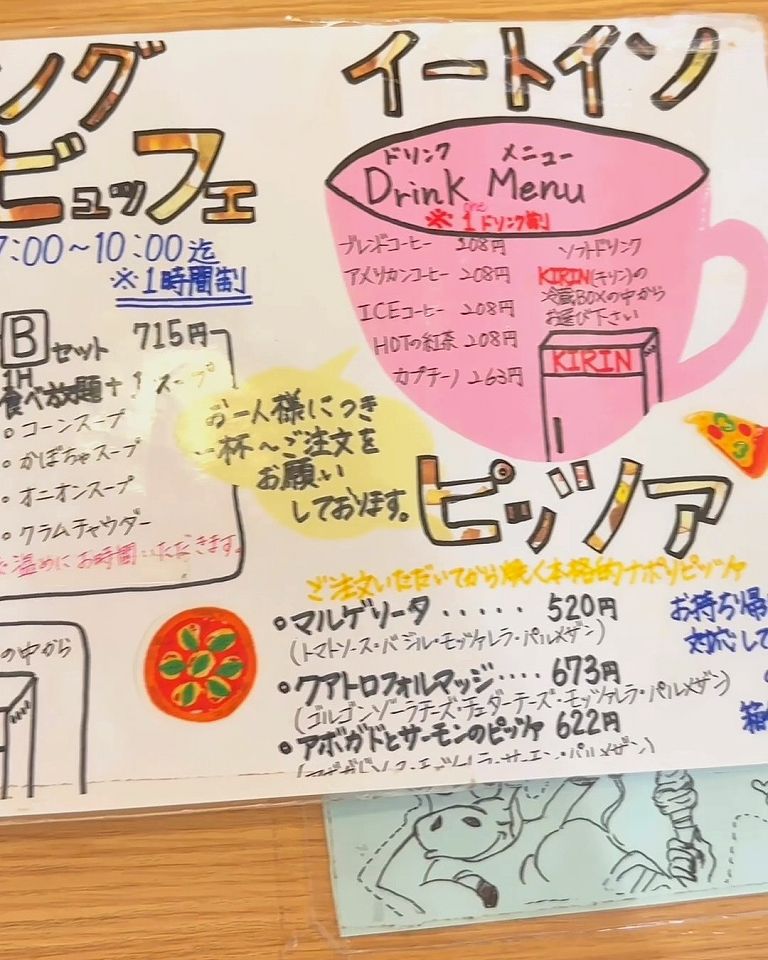 ング
ビュッフェ
7:00～10:00迄
※1時間制
B セット 715円
1H
食べ放題＋1スープ
○コーンスープ
○かぼちゃスープ
○オニオンスープ
○クラムチャウダー
温めにお時間いただきます。
の中から
お一人様につき
一杯～ご注文を
お願い
しております。
イートイン
ドリンク メニュー
Drink Menu
one
※1ドリンク制
ブレンドコーヒー 208円
アメリカンコーヒー 208円
ICEコーヒー 208円
HOTの紅茶 208円
カプチーノ 263円
ソフトドリンク
KIRIN(キリン)の
冷蔵BOXの中から
お選び下さい
KIRIN
ピッツァ
ご注文いただいてから焼く本格的ナポリピッツァ
○マルゲリータ ..... 520円
(トマトソース・バジル・モッツァレラ・パルメザン)
○クアトロフォルマッジ.... 673円
(ゴルゴンゾーラチーズ・チェダーチーズ・モッツァレラ・パルメザン)
○アボガドとサーモンのピッツァ 622円
お持ち帰
対応して
箱